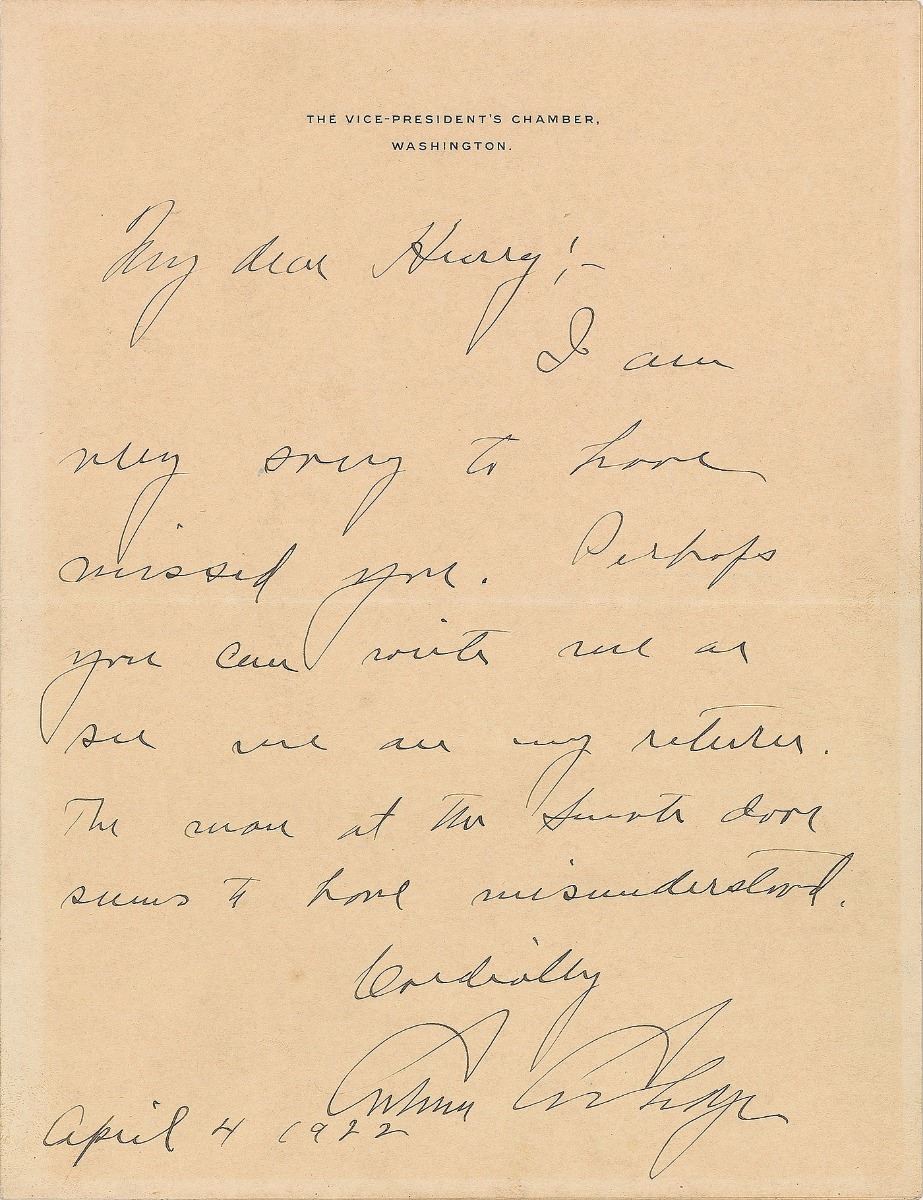 THE VICE-PRESIDENT'S CHAMBER,
WASHINGTON.
My dear Harry:-
I am
very sorry to have
missed you. Perhaps
you can write me or
see me on my return.
The man at the Senate door
seems to have misunderstood.
Cordially
Calvin Coolidge
April 4 1922